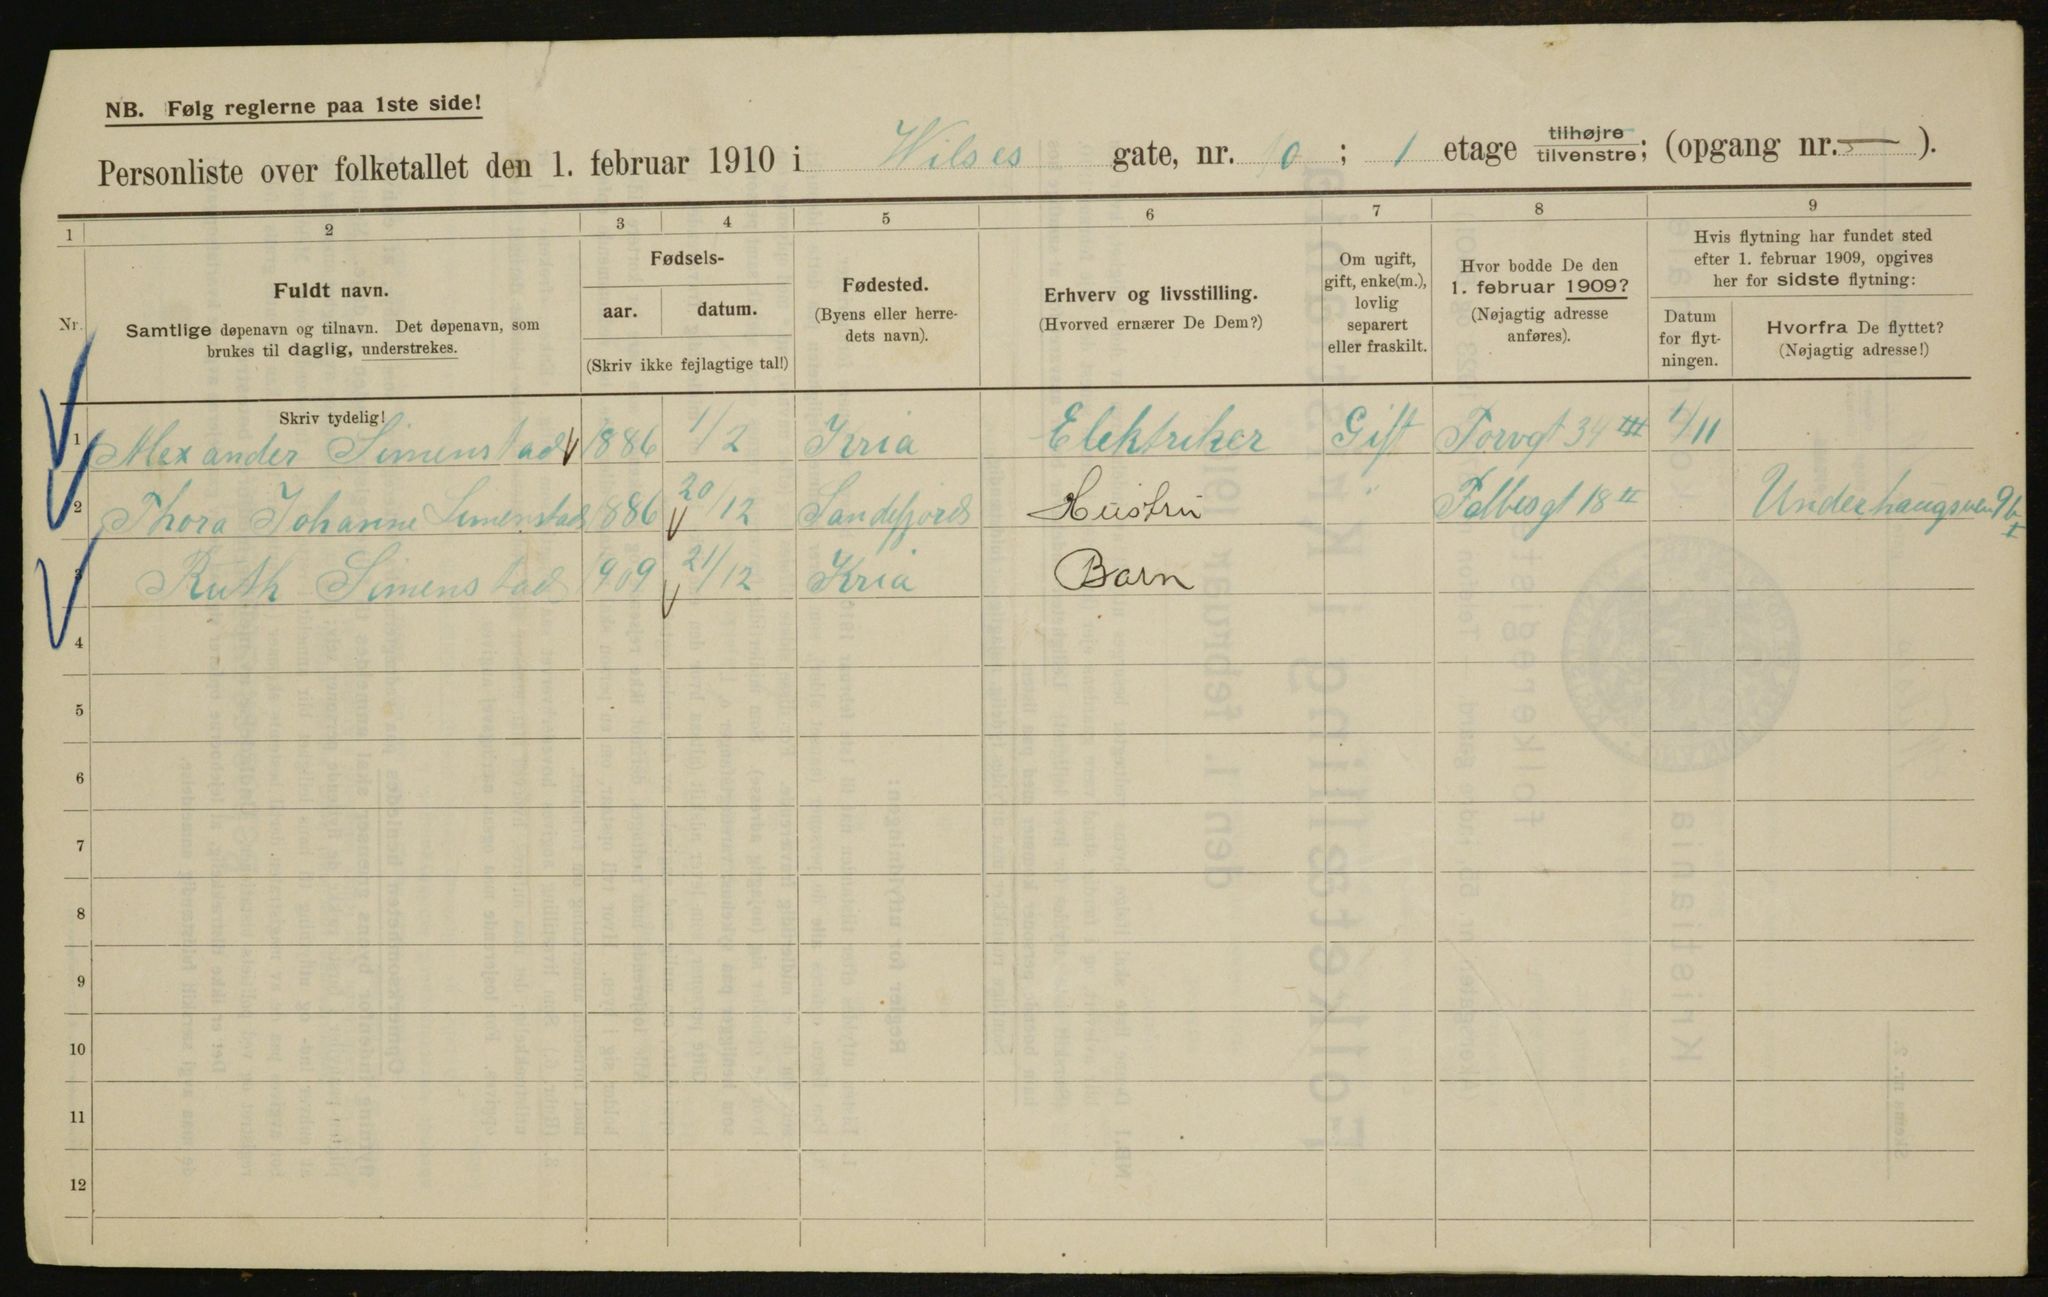 NB. Følg reglerne paa 1ste side!
Personliste over folketallet den 1. februar 1910 i Wilses gate, nr. 10 ; 1 etage tilhøjre/tilvenstre; (opgang nr. — ).
1 2 3 4 5 6 7 8 9
Nr.
Fuldt navn.
Samtlige døpenavn og tilnavn. Det døpenavn, som
brukes til daglig, understrekes.
Fødsels-
aar. datum.
(Skriv ikke fejlagtige tal!)
Fødested.
(Byens eller herre-
dets navn).
Erhverv og livsstilling.
(Hvorved ernærer De Dem?)
Om ugift,
gift, enke(m.),
lovlig
separert
eller fraskilt.
Hvor bodde De den
1. februar 1909?
(Nøjagtig adresse
anføres).
Hvis flytning har fundet sted
efter 1. februar 1909, opgives
her for sidste flytning:
Datum
for flyt-
ningen.
Hvorfra De flyttet?
(Nøjagtig adresse!)
Skriv tydelig!
1 Alexander Simenstad 1886 1/2 Kria Elektriker Gift Torvgt 34 III 1/11
2 Thora Johanne Simenstad 1886 20/12 Sandefjord Hustru " Falbesgt 18 II Underhaugsvei 9b I
3 Ruth Simenstad 1909 21/12 Kria Barn
4
5
6
7
8
9
10
11
12